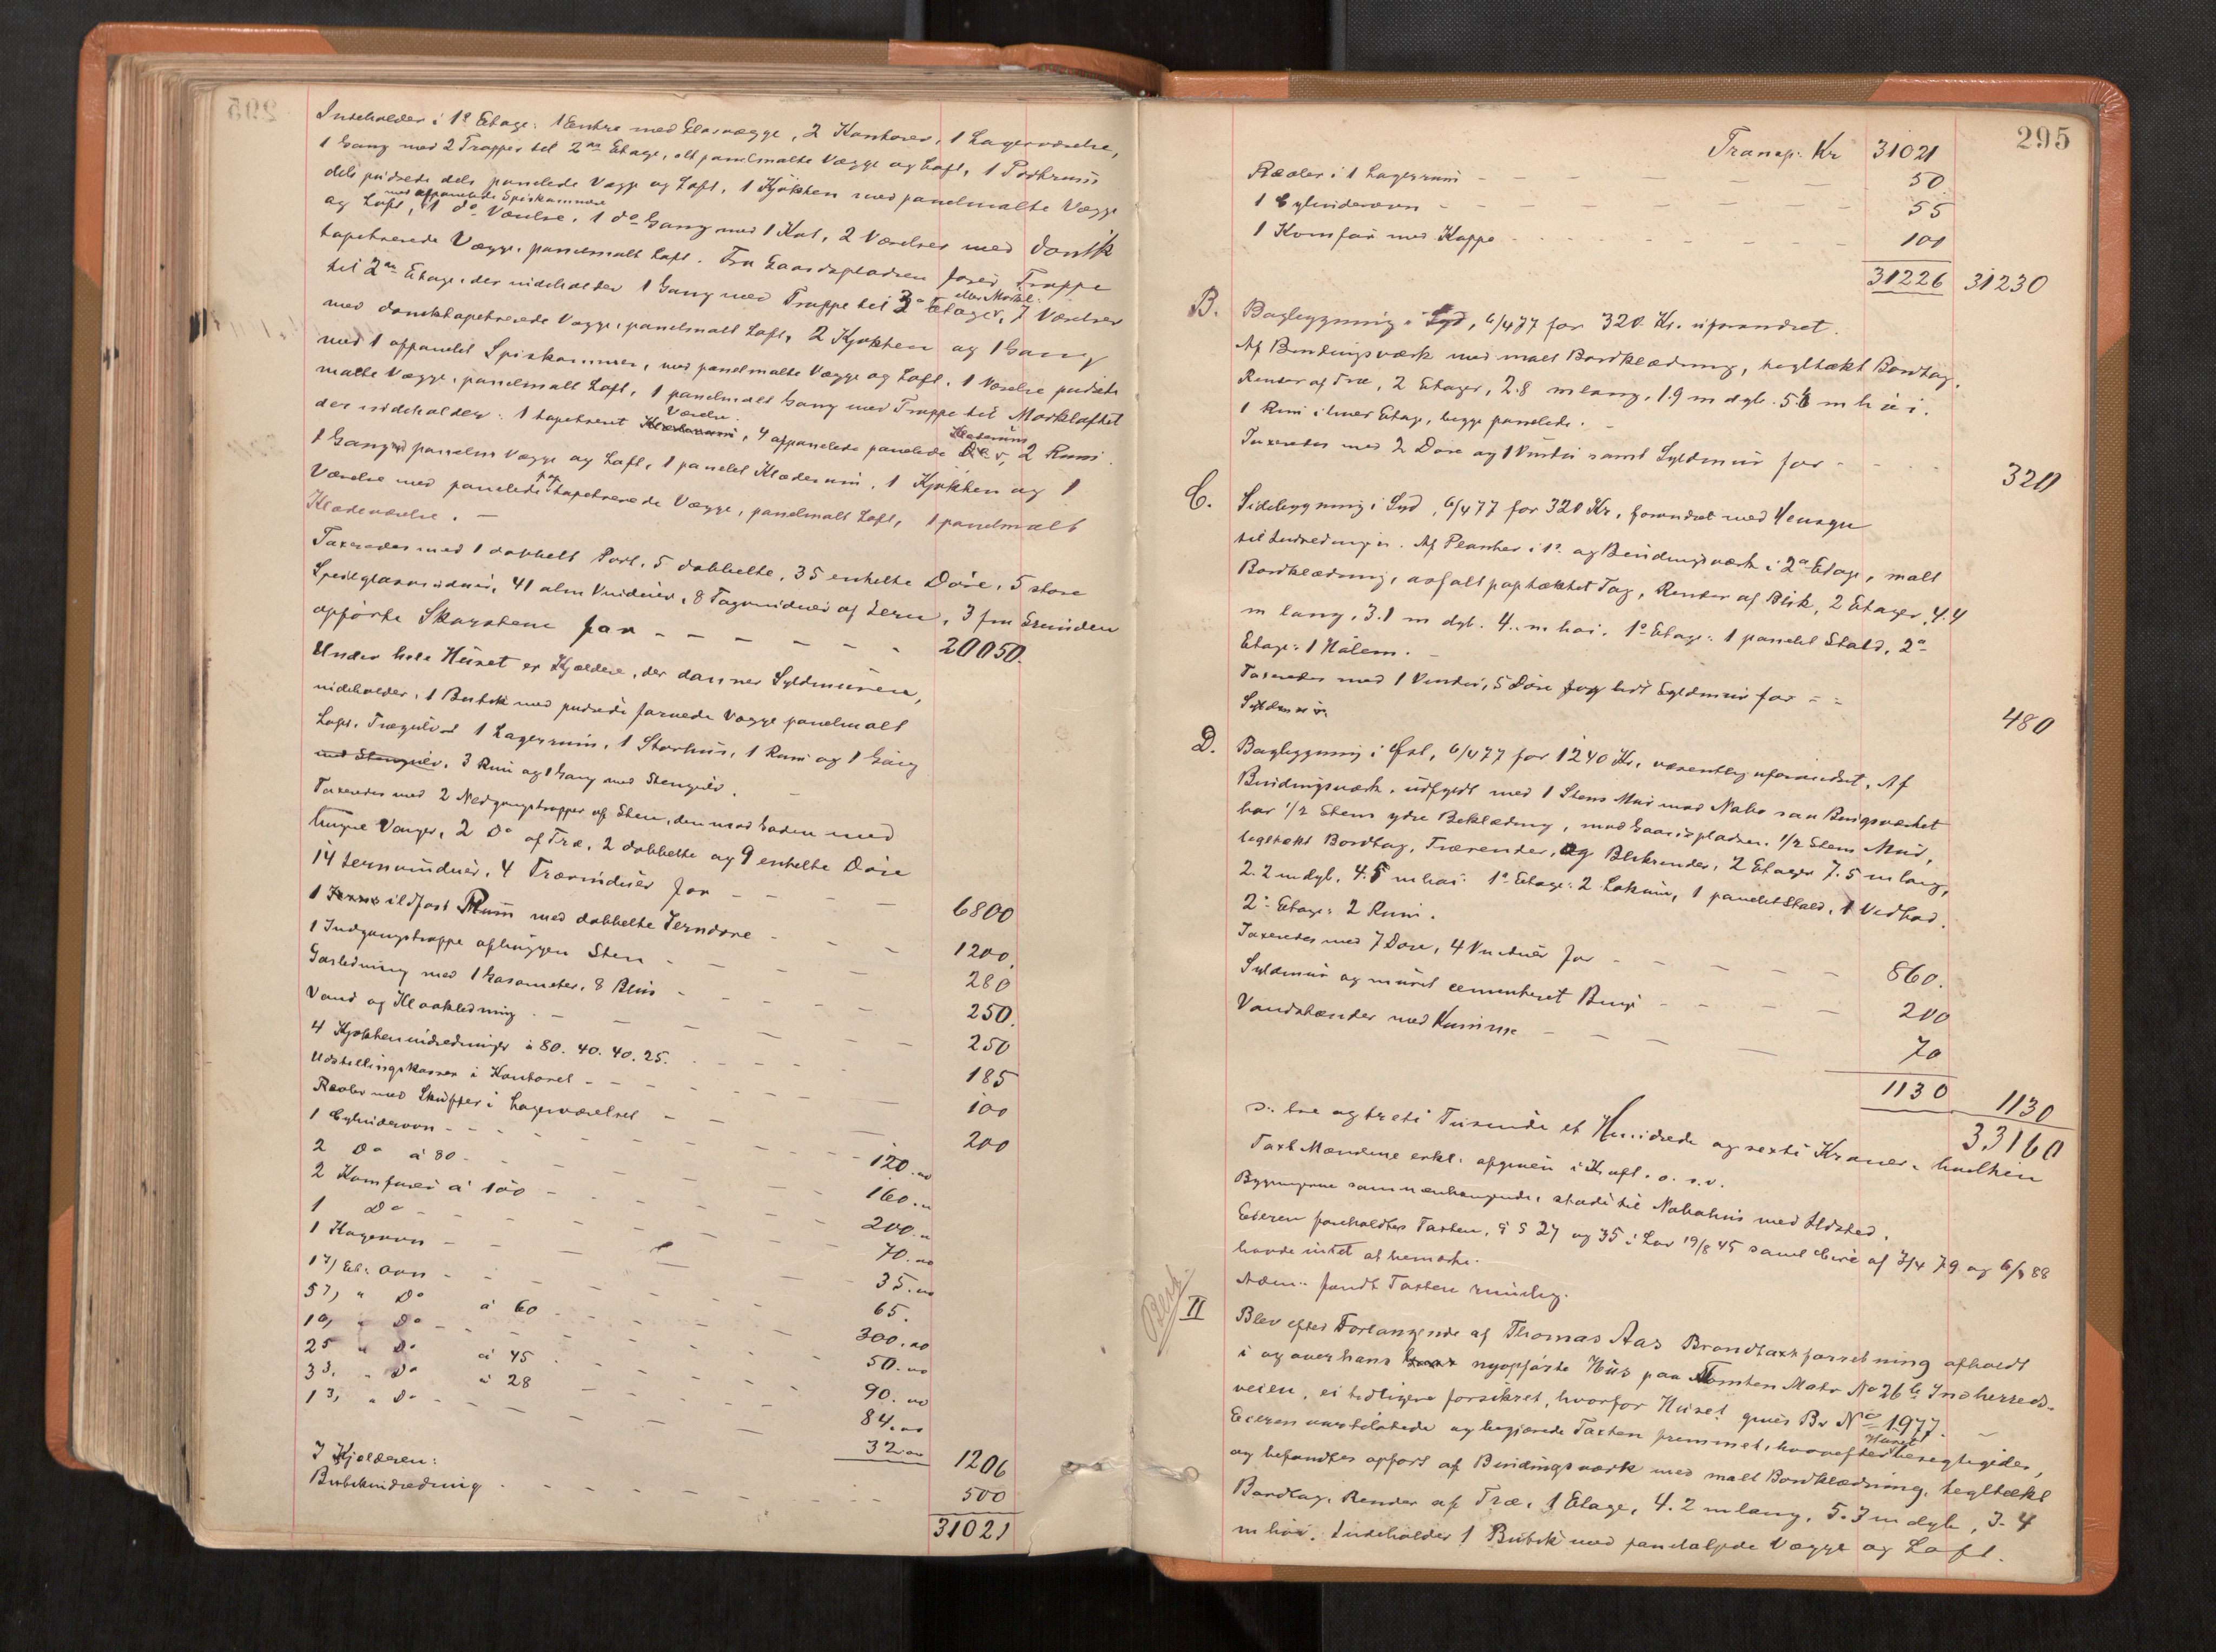 Indeholder i 1ste Etage: 1 Entre med Glasvægge, 2 Kontorer, 1 Lagerværelse,
1 Gang med 2 Trapper til 2den Etage, alt panelmalte Vægge og Loft, 1 Portrum
dels pudsede dels panelede Vægge og Loft, 1 Kjøkken med panelmalte Vægge
med afpanelede Spiskammere
og Loft, 1 do Værelse, 1 do Gang med 1 Kot, 2 Værelser med dansk
tapetserede Vægge, panelmalt Loft. Fra Gaardspladsen fører Trappe
til 2den Etage, der indeholder 1 Gang med Trappe til 3die Etage, 7 Værelser
med dansktapetserede Vægge, panelmalt Loft, 2 Kjøkken og 1 Gang
med 1 afpanelet Spiskammer, med panelmalte Vægge og Loft, 1 Værelse pudsede
malte Vægge, panelmalt Loft, 1 panelmalt Gang med Trappe til Mørkloftet
der indeholder: 1 tapetseret Værelse, 4 afpanelede panelede Klæderum, 2 Rum.
1 Gang med panelm Vægge og Loft, 1 panelet Klæderum, 1 Kjøkken og 1
Værelse med panelede paptapetserede Vægge, panelmalt Loft, 1 panelmalt
Klædeværelse. –
Taxeredes med 1 dobbelt Port, 5 dobbelte, 35 enkelte Døre, 5 store
Speilglasvinduer, 41 alm Vinduer, 8 Tagvinduer af Jern, 3 fra Grunden
opførte Skorstene for – – – – – 20050.
Under hele Huset er Kjældere, der danner Syldmuren,
indeholder, 1 Butik med pudsede farvede Vægge panelmalt
Loft, Trægulv 1 Lagerrum, 1 Storhus, 1 Rum og 1 Gang
med Stengulv, 3 Rum og 1 Gang med Stengulv. –
Taxeredes med 2 Nedgangstrapper af Sten, den mod Gaden med
hugne Vanger, 2 Do af Træ, 2 dobbelte og 9 enkelte Døre
14 Jernvinduer, 4 Trævinduer for – – – 6800
1 ildfast Rum med dobbelte Jerndøre – – – 1200.
1 Indgangstrappe afhuggen Sten – – – – 280
Gasledning med 1 Gasometer, 8 Blus – – – 250.
Vand og Kloakledning. – – – – – 250
4 Kjøkkenindredninger à 80. 40. 40. 25. – – – 185
Udstillingskasser i Kontoret – – – – 100
Reoler med Skuffer i Lagerværelset – – – 200
1 Cylinderovn – – – – – 120.00
2 Do à 80 – – – – 160.00
2 Komfurer à 100 – – – 200.00
1 Do – – – – 70.00
1 Kageovn – – – – 35.00
1 7/ Et: Ovn – – – – 65.
5 7/ " Do à 60 – – – 300.00
1 9/ " Do – – – – 50.00
2 5 " Do à 45 – – – 90.00
3 3/ " Do à 28 – – – 84.00
1 3/ " Do – – – – 32.00 1206
I Kjælderen:
Butikindredning – – – – – 500
31021
295
Transp: Kr 31021
Reoler i 1 Lagerrum – – – – – 50
1 Cylinderovn – – – – – 55
1 Komfur med Kappe – – – – 100
31226 31230
B. Bagbygning i Syd, 6/4 77 for 320 Kr. uforandret.
Af Bindingsværk med malt Bordklædning, tegltækt Bordtag,
Render af Træ, 2 Etager, 2.8 m lang, 1.9 m dyb. 5.6 m høi.
1 Rum i hver Etage, begge panelede. –
Taxeredes med 2 Døre og 1 Vindu samt Syldmur for – – – 320
C. Sidebygning i Syd, 6/4 77 for 320 Kr, forandret med Hensyn
til Indredningen. Af Planker i 1ste og Bindingsværk i 2den Etage, malt
Bordklædning, asfaltpaptækket Tag, Render af Blik, 2 Etager, 4.4
m lang, 3.1 m dyb. 4.. m høi. 1ste Etage: 1 panelet Stald. 2den
Etage: 1 Hølem. –
Taxeredes med 1 Vindu, 5 Døre og lidt Syldmur for – – 480
Syldmur.
D. Bagbygning i Øst, 6/4 77 for 1240 Kr, væsentlig uforandret. Af
Bindingsværk, udfyldt med 1 Stens Mur mod Nabo saa Bingværket
har 1/2 Stens ydre Beklædning, mod Gaardspladsen 1/2 Stens Mur,
tegltækt Bordtag, Trærender, og Blikrender, 2 Etager 7.5 m lang,
2.2 m dyb, 4.5 m høi. 1ste Etage: 2 Lokum, 1 panelet Stald, 1 Vedbod.
2den Etage: 2 Rum.
Taxeredes med 7 Døre, 4 Vinduer for – – – – 860.
Syldmur og muret cementeret Binge – – – 200
Vandstænder med Kumme – – – – 70
1130 1130
33160
d: tre og treti Tusinde et Hundrede og sexti Kroner, hvilken
Taxt Mændene erkl. afgiven i Kraft. o. s. v.
Bygningerne sammenhængende, stødte til Nabohus med Ildsted.
Eieren foreholdtes Taxten, § § 27 og 35 i Lov 19/8 45 samt Circ af 7/4 79 og 6/8 88
havde intet at bemærke.
Adm:. fandt Taxten rimelig.
Besk.
II Blev efter Forlangende af Thomas Aas Brandtaxtforretning afholdt
i og over hans nyopførte Hus paa Tomten Matr No 26 b Indherreds-
veien, ei tidligere forsikret, hvorfor Huset gives Br No 1977. –
Eieren var tilstede og begjærede Taxten fremmet, hvorefter Huset besigtigedes,
og befandtes opført af Bindingsværk med malt Bordklædning, tegltækt
Bordtag, Render af Træ, 1 Etage, 4.2 m lang, 5.3 m dyb, 3.4
m høi. Indeholder 1 Butik med panelaljede Vægge og Loft.